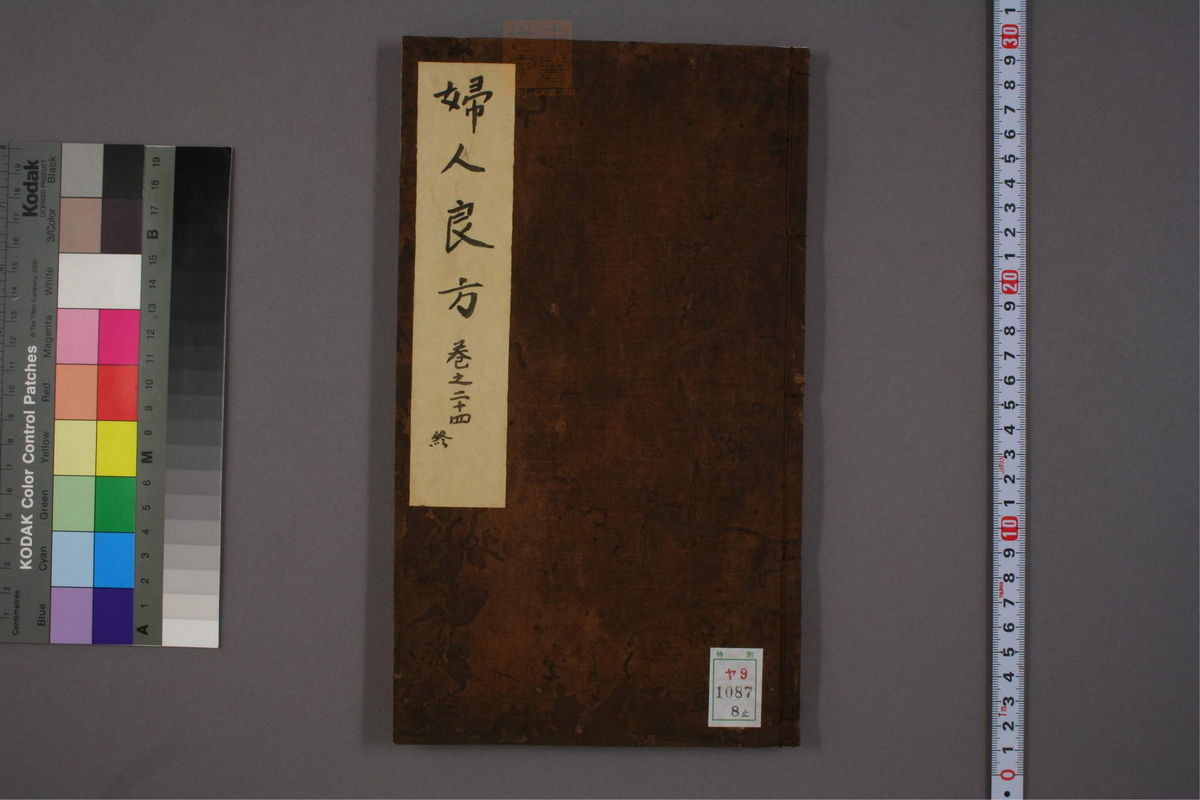 婦人良方 卷之二十四
終
特別
ヤ9
1087
8止
Kodak
LICENSED PRODUCT
KODAK Color Control Patches
© The Tiffen Company, 2000
Centimetres
Blue
Cyan
Green
Yellow
Red
Magenta
White
3/Color
Black
A 1 2 3 4 5 6 M 8 9 10 11 12 13 14 15 B 17 18 19
1
30
9
8
7
6
5
4
3
2
1
20
9
8
7
6
5
4
3
2
1
10
9
8
7
6
5
4
3
2
1
0